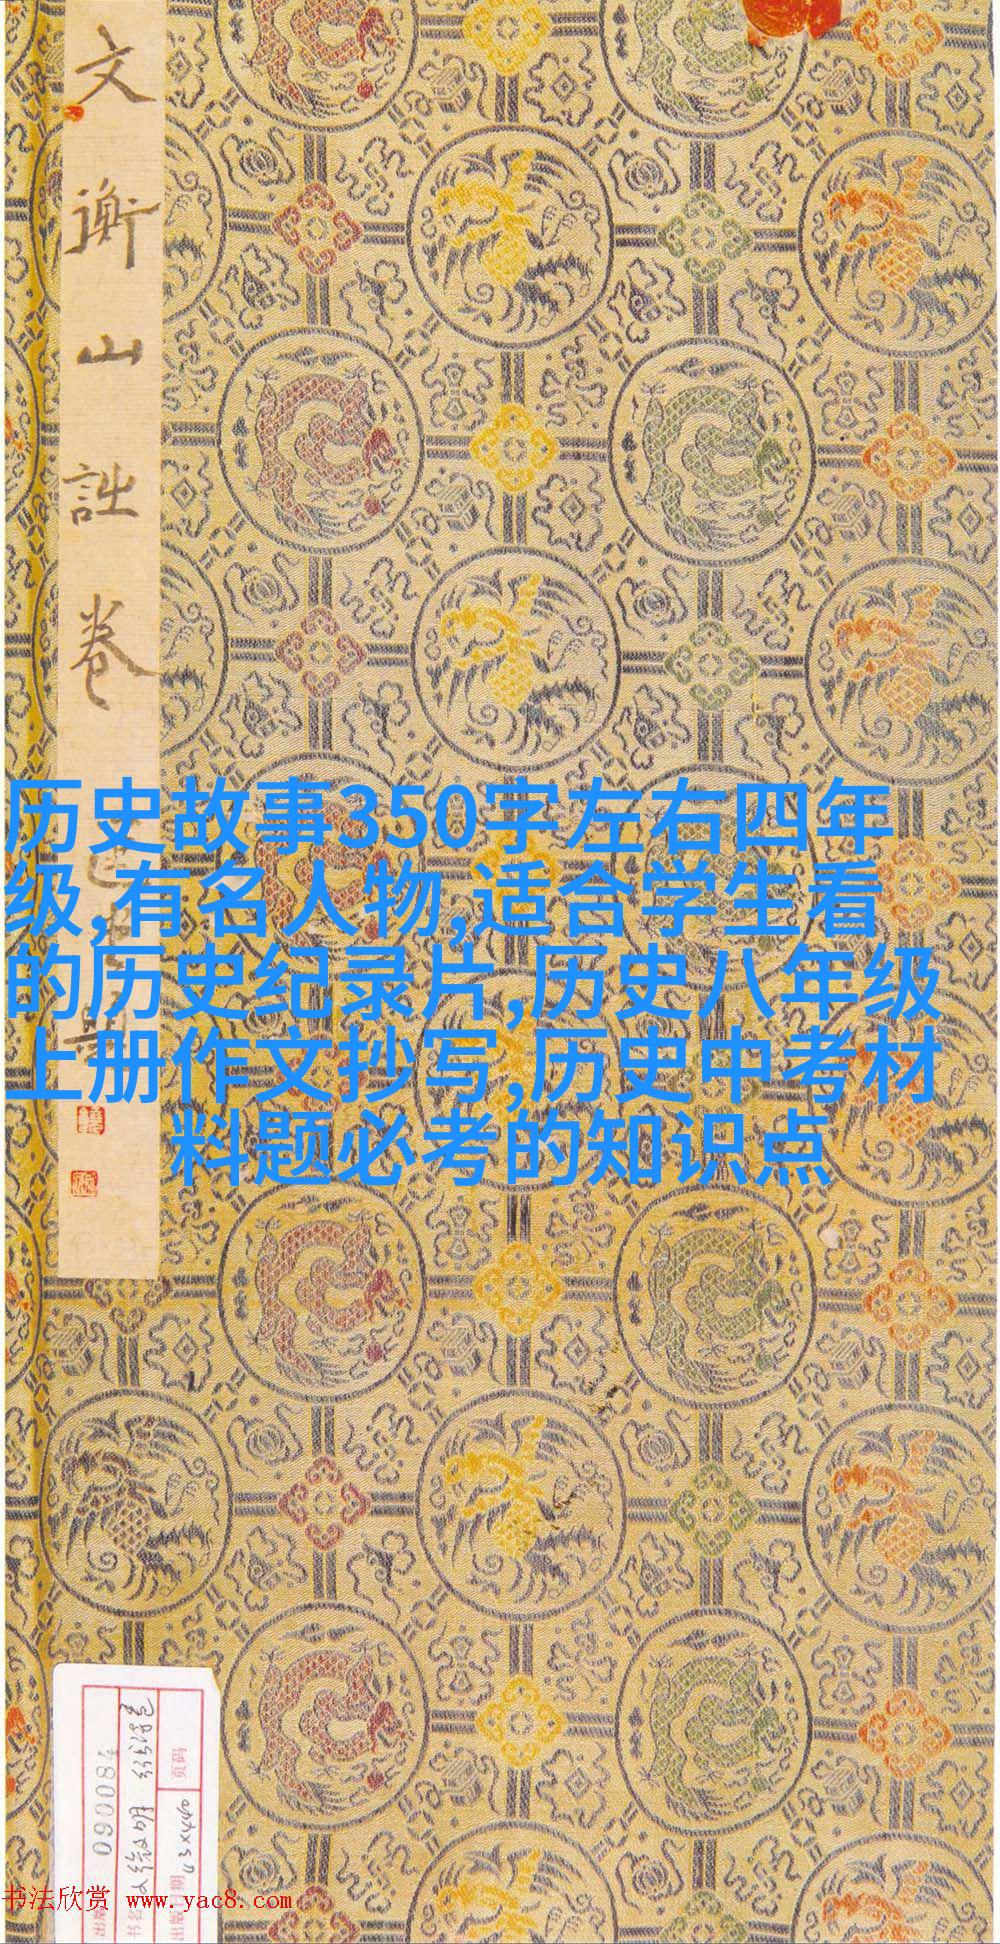 文衡山詩卷
历史故事350字左右四年
级,有名人物,适合学生看
的历史纪录片,历史八年级
上册作文抄写,历史中考材
料题必考的知识点
090084
页码
43x440
书法欣赏 www.yac8.com